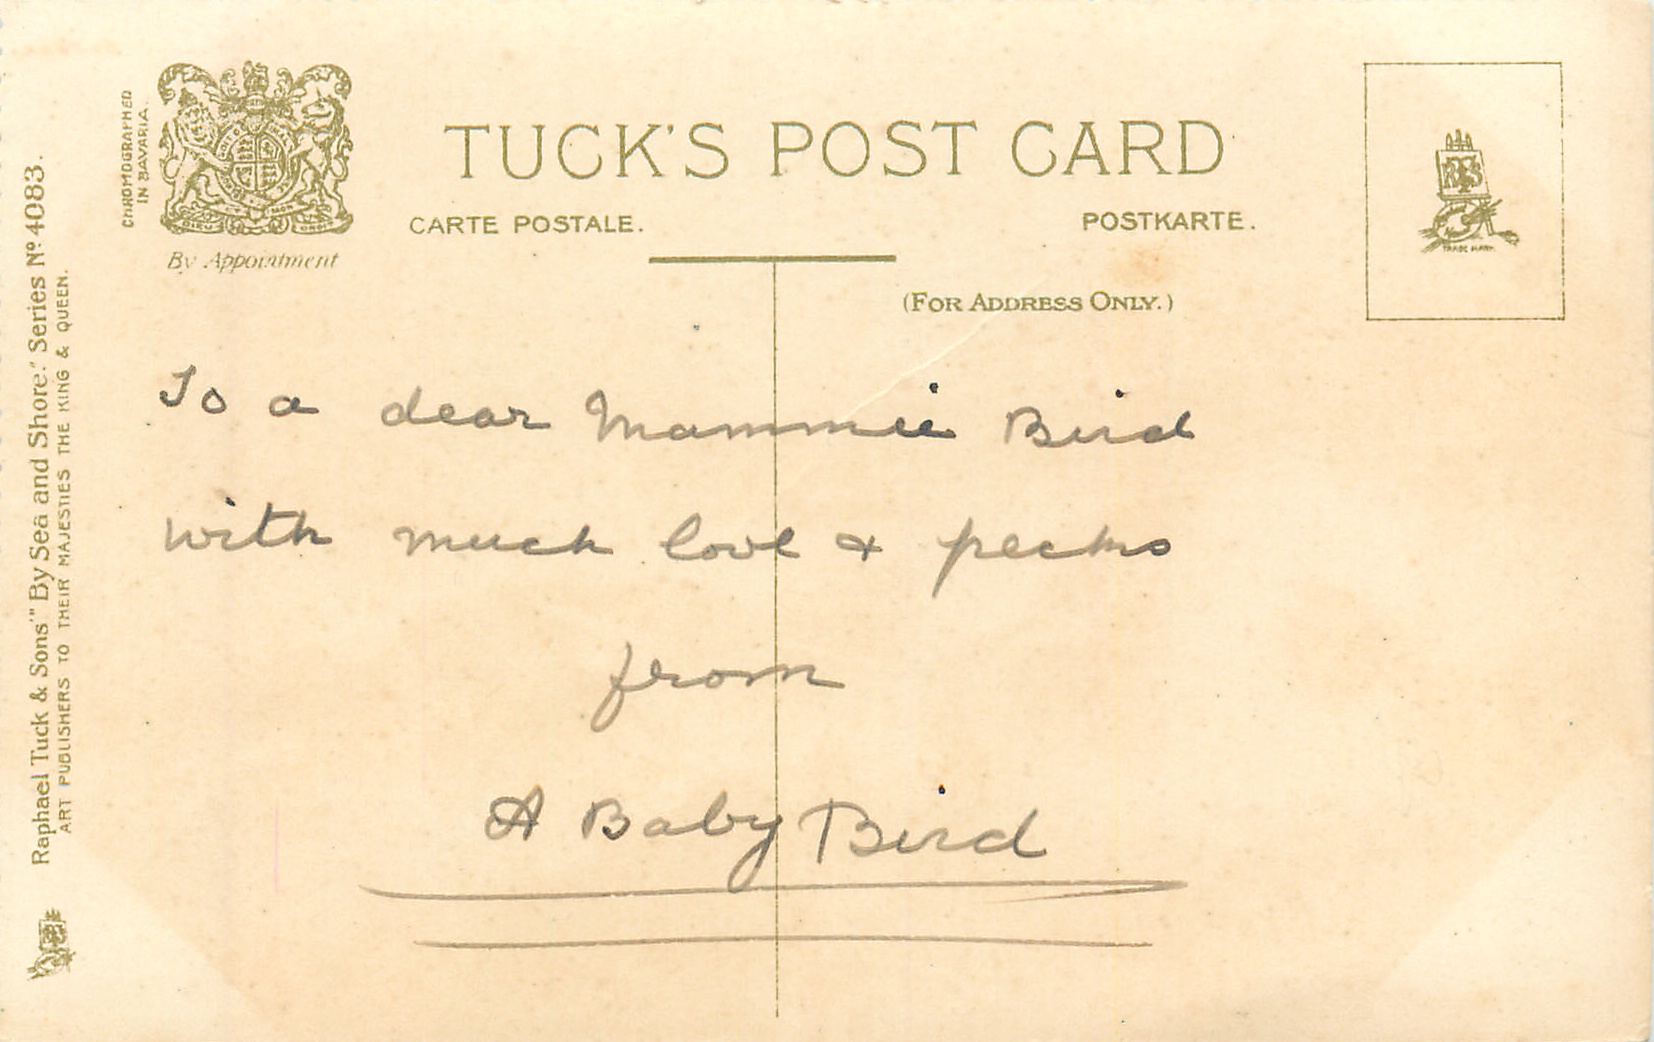 CHROMOGRAPHED
IN BAVARIA.
By Appointment
TUCK'S POST CARD
CARTE POSTALE.
POSTKARTE.
(FOR ADDRESS ONLY.)
TRADE MARK
To a dear Mammie Bird
with much love & pecks
from
A Baby Bird
Raphael Tuck & Sons' "By Sea and Shore." Series Nº 4083.
ART PUBLISHERS TO THEIR MAJESTIES THE KING & QUEEN.